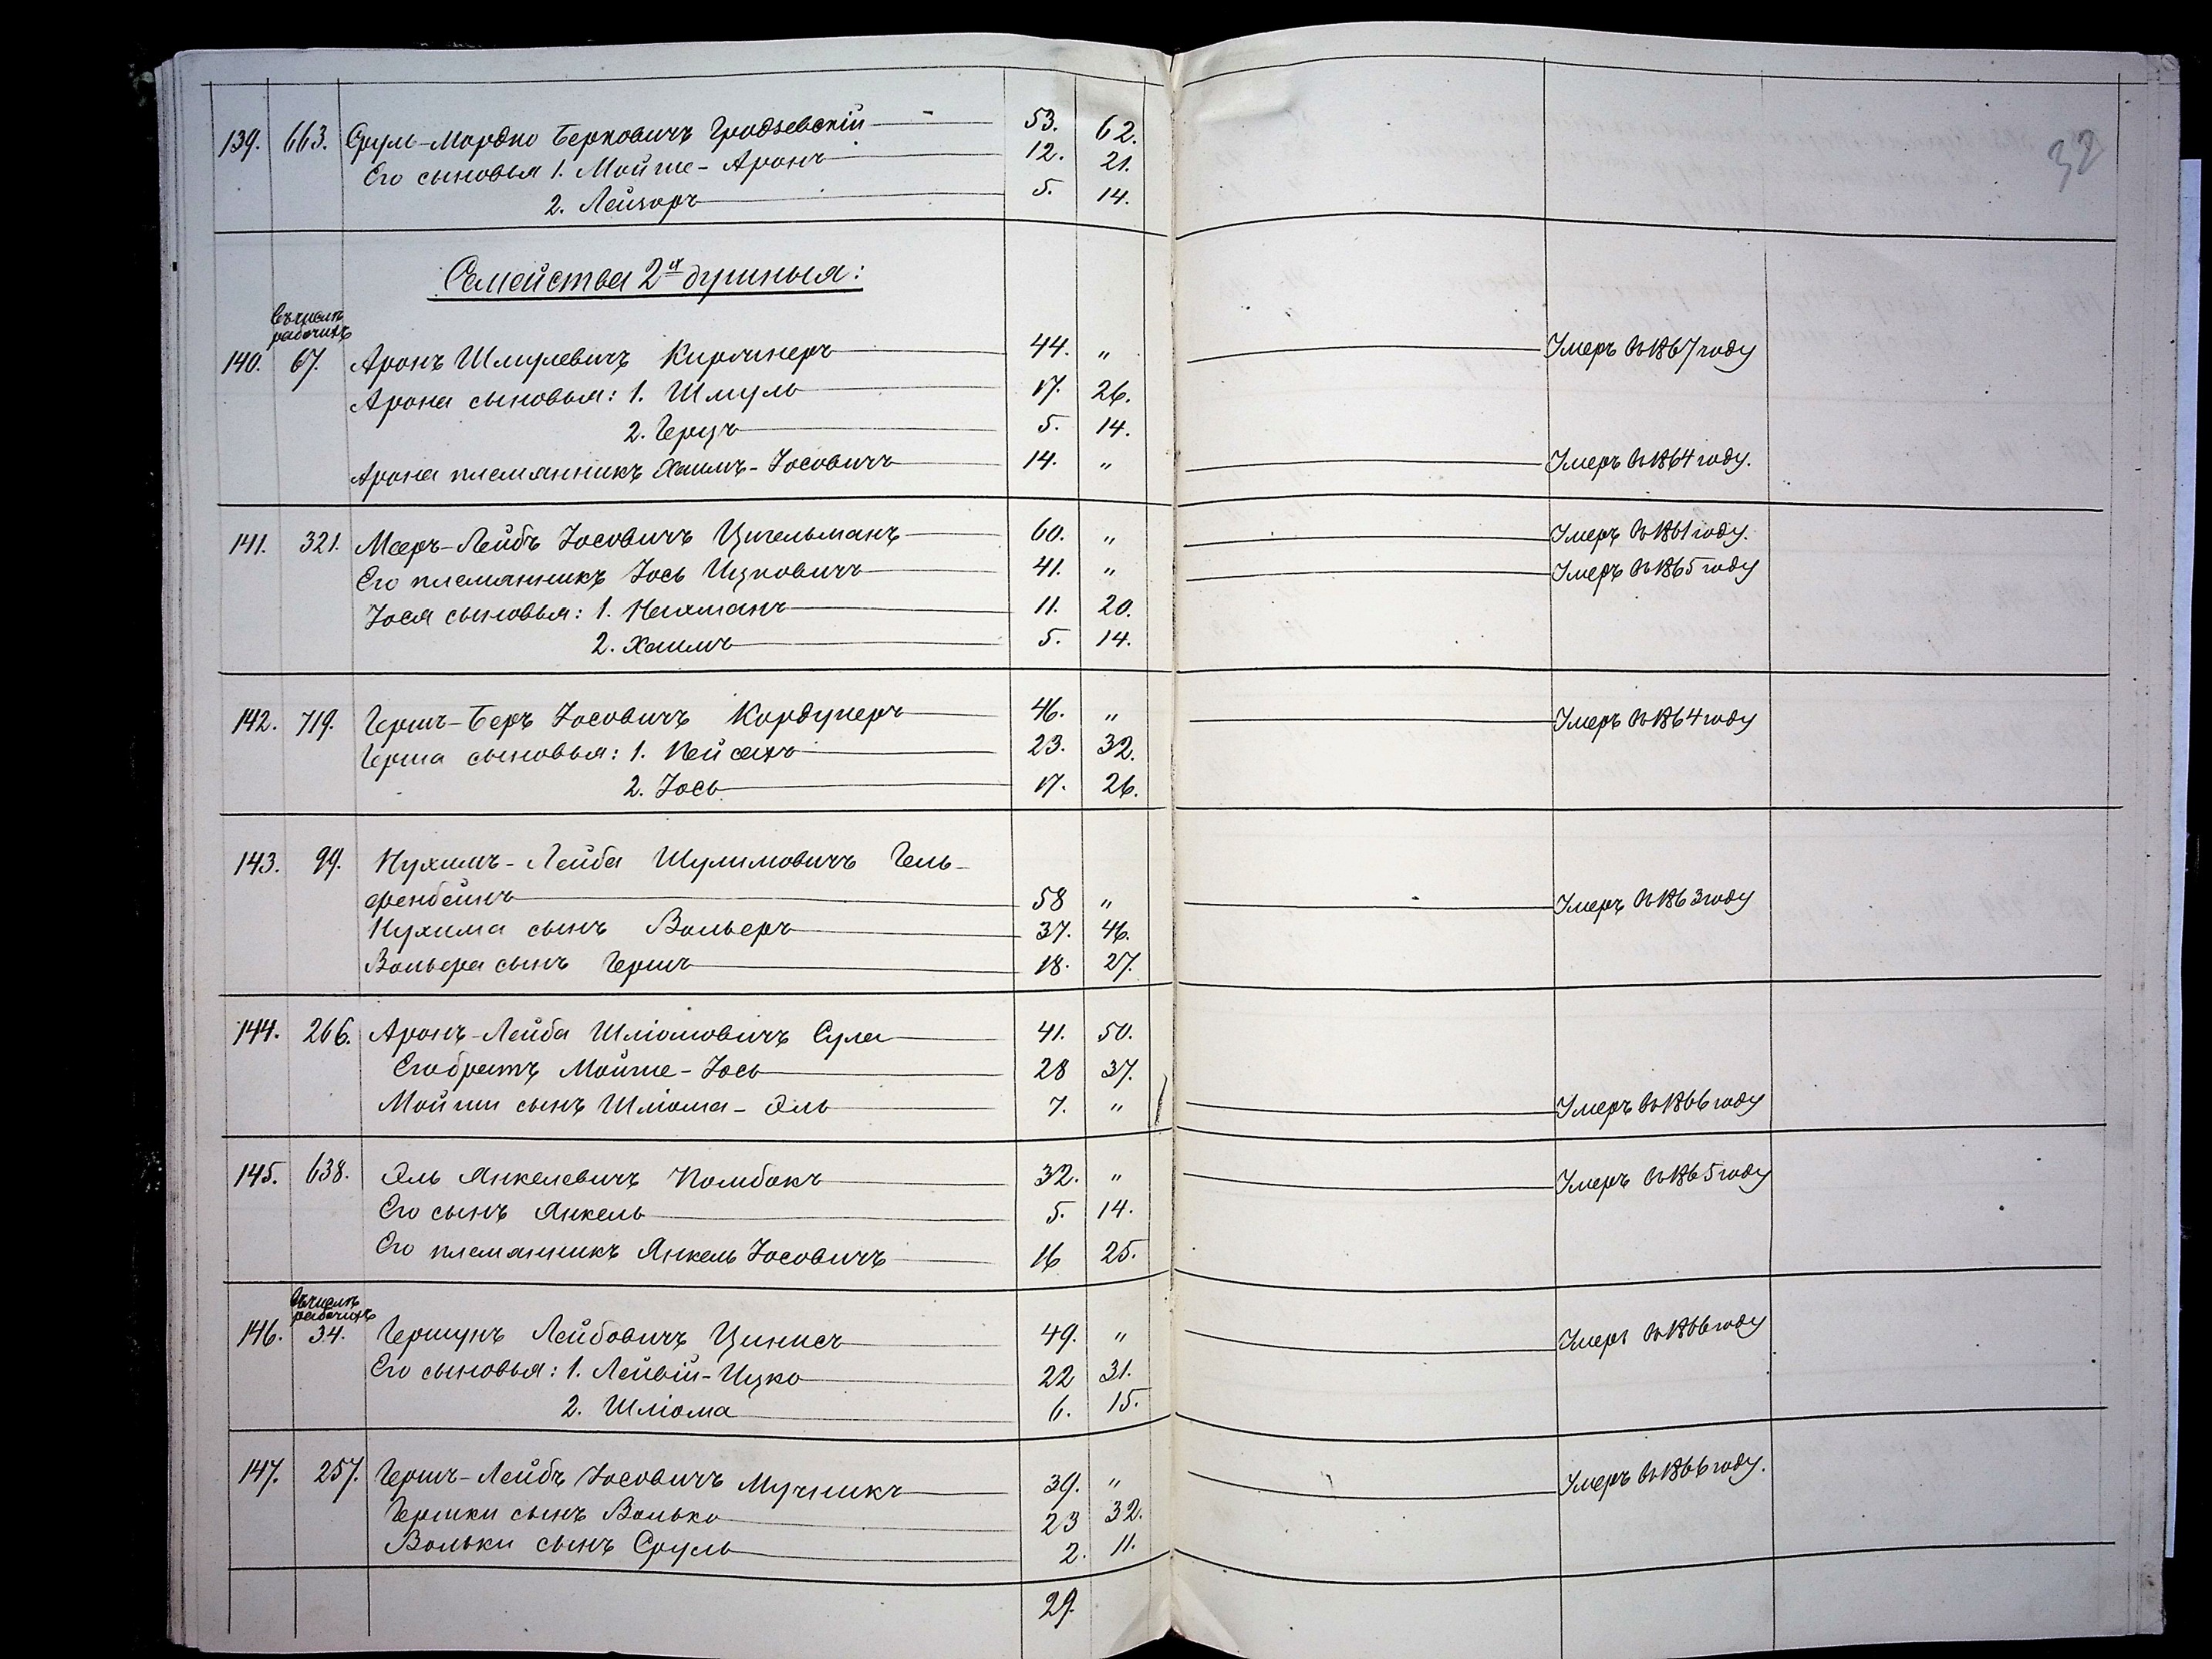 32
139. 663. Сруль-Мордко Берковичъ Гродзевскій 53. 62.
Его сыновья 1. Мойше-Аронъ 12. 21.
2. Лейзоръ 5. 14.
Семейства 2х душныя:
въ числѣ
рабочихъ
140. 67. Аронъ Шмулевичъ Киржнеръ 44. " Умеръ въ 1867 году
Арона сыновья: 1. Шмуль 17. 26.
2. Герцъ 5. 14.
Арона племянникъ Хаимъ-Іосовичъ 14. " Умеръ въ 1864 году.
141. 321. Мееръ-Лейбъ Іосовичъ Цигельманъ 60. " Умеръ въ 1861 году.
Его племянникъ Іось Ицковичъ 41. " Умеръ въ 1865 году
Іося сыновья: 1. Нахманъ 11. 20.
2. Хаимъ 5. 14.
142. 719. Гершъ-Беръ Іосовичъ Кордунеръ 46. " Умеръ въ 1864 году
Герша сыновья: 1. Пейсахъ 23. 32.
2. Іось 17. 26.
143. 99. Нухимъ-Лейба Шулимовичъ Гель-
фенбейнъ 58 " Умеръ въ 1863 году
Нухима сынъ Вольферъ 37. 46.
Вольфра сынъ Гершъ 18. 27.
144. 266. Аронъ-Лейба Шліомовичъ Сула 41. 50.
Его братъ Мойше-Іось 28 37.
Мойши сынъ Шліома-Эль 7. " Умеръ въ 1866 году
145. 638. Эль Янкелевичъ Помбакъ 32. " Умеръ въ 1865 году
Его сынъ Янкель 5. 14.
Его племянникъ Янкель Іосовичъ 16 25.
въ числѣ
рабочихъ
146. 34. Гершунъ Лейбовичъ Цинисъ 49. " Умеръ въ 1866 году
Его сыновья: 1. Лейвій-Ицко 22 31.
2. Шліома 6. 15.
147. 257. Гершъ-Лейбъ Іосовичъ Мучникъ 39. " Умеръ въ 1866 году.
Гершки сынъ Волько 23 32.
Вольки сынъ Сруль 2. 11.
29.